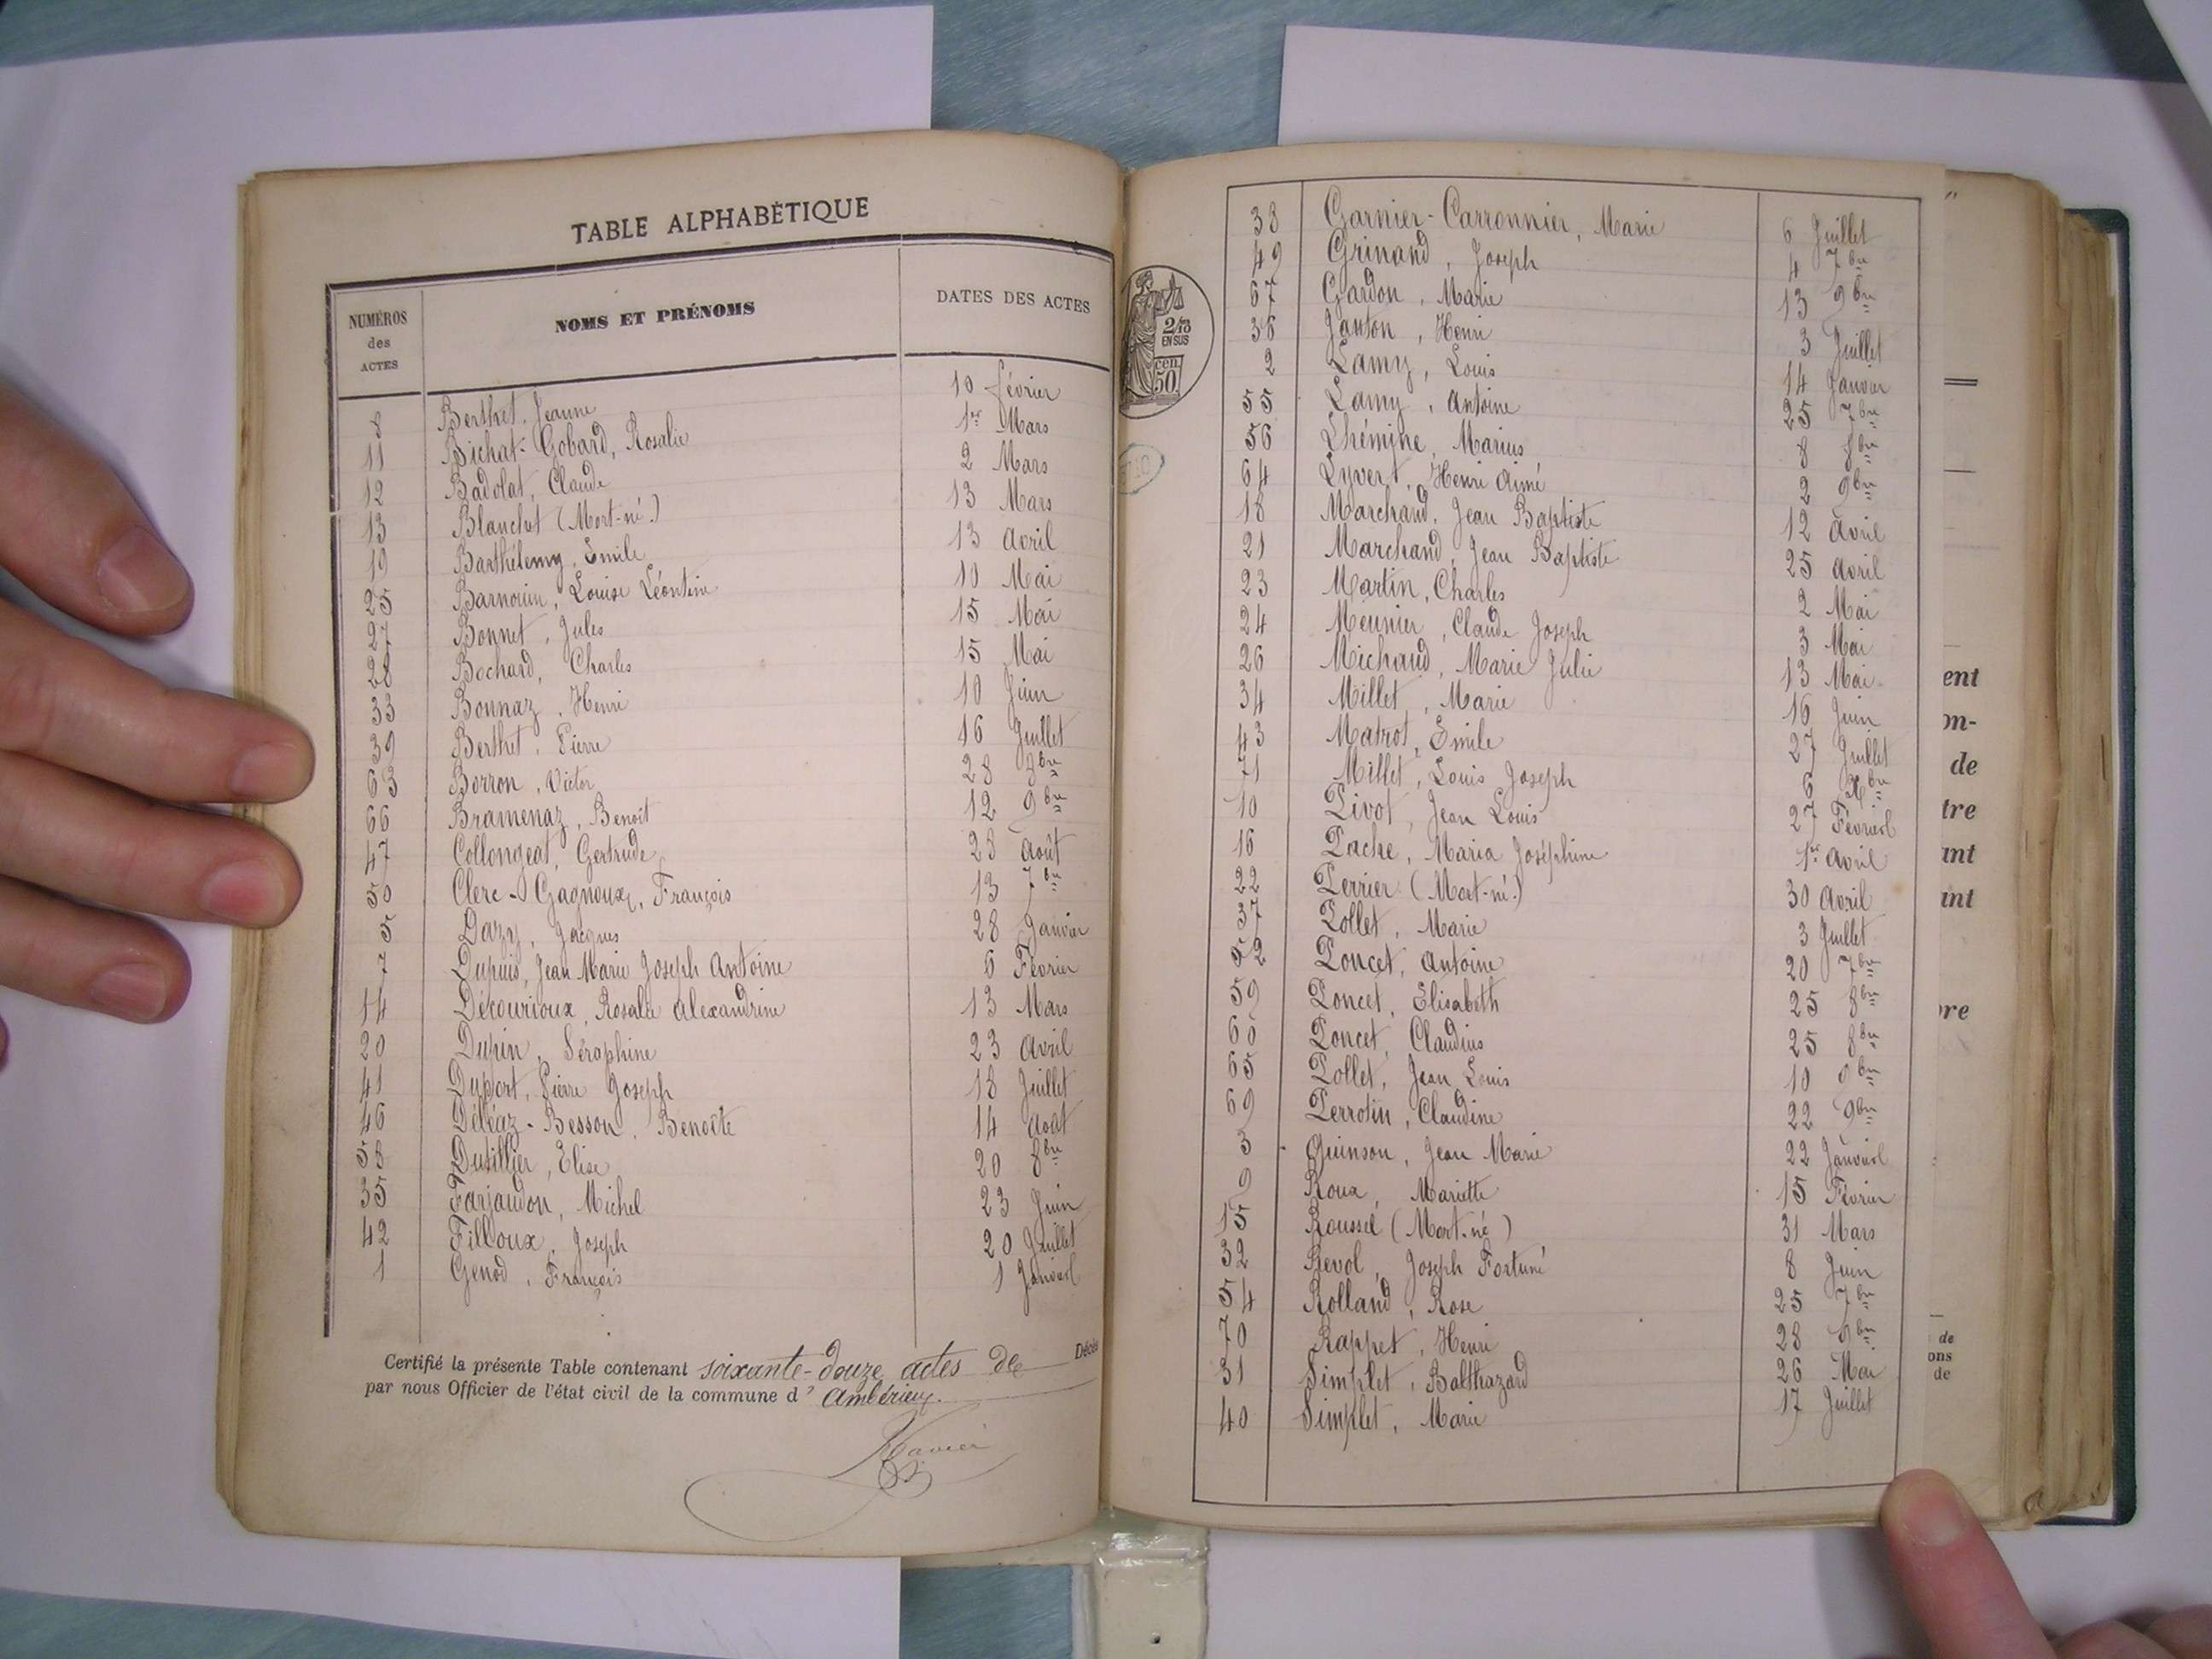 TABLE ALPHABÉTIQUE
NUMÉROS des ACTES NOMS ET PRÉNOMS DATES DES ACTES
8 Berthet, Jeanne 10 février
11 Bichat-Gobard, Rosalie 1er Mars
12 Badolat, Claude 2 Mars
13 Blanchet (Mort-né.) 13 Mars
19 Barthélemy, Emile 13 Avril
25 Barnouin, Louise Léontine 10 Mai
27 Bonnet, Jules 15 Mai
28 Bochard, Charles 15 Mai
33 Bonnaz, Henri 10 Juin
39 Berthet, Pierre 16 Juillet
63 Borron, Victor 28 8bre
66 Bramenaz, Benoit 12 9bre
47 Collongeat, Gertrude 28 Août
50 Clerc-Gagnoux, François 13 7bre
5 Dazy, Jacques 28 Janvier
7 Dupuis, Jean Marie Joseph Antoine 6 Février
14 Décourioux, Rosalie Alexandrine 13 Mars
20 Dupin, Séraphine 23 Avril
41 Duport, Pierre Joseph 18 Juillet
46 Déléaz-Besson, Benoîte 14 Août
58 Dutillier, Elise 20 8bre
35 Farjaudon, Michel 23 Juin
42 Filloux, Joseph 20 Juillet
1 Genod, François 1 Janvier
Certifié la présente Table contenant soixante-douze actes de Décès
par nous Officier de l'état civil de la commune d' Ambérieux.
2/10
EN SUS
cen
50
38 Garnier-Carronnier, Marie 6 Juillet
49 Grinand, Joseph 4 7bre
67 Gardon, Marie 13 9bre
36 Janton, Henri 3 Juillet
2 Lamy, Louis 14 Janvier
55 Lamy, Antoine 25 7bre
56 Lhémine, Marius 8 8bre
64 Lyvert, Henri Aimé 2 9bre
18 Marchand, Jean Baptiste 12 Avril
21 Marchand, Jean Baptiste 25 Avril
23 Martin, Charles 2 Mai
24 Meunier, Claude Joseph 3 Mai
26 Michaud, Marie Julie 13 Mai
34 Millet, Marie 16 Juin
43 Matrot, Emile 27 Juillet
71 Millet, Louis Joseph 6 Xbre
10 Pivot, Jean Louis 27 Février
16 Pache, Maria Joséphine 1er Avril
22 Perrier (Mort-né.) 30 Avril
37 Pollet, Marie 3 Juillet
52 Poncet, Antoine 20 7bre
59 Poncet, Elisabeth 25 8bre
60 Poncet, Claudius 25 8bre
65 Pollet, Jean Louis 10 9bre
69 Perrotin, Claudine 22 9bre
3 Quinson, Jean Marie 22 Janvier
9 Roux, Mariette 15 Février
15 Roussel (Mort-né) 31 Mars
32 Revol, Joseph Fortuné 8 Juin
54 Rolland, Rose 25 7bre
70 Rappet, Henri 28 9bre
31 Simplet, Balthazard 26 Mai
40 Simplet, Marie 17 Juillet
ent
on-
de
tre
ant
int
bre
de
ons
de